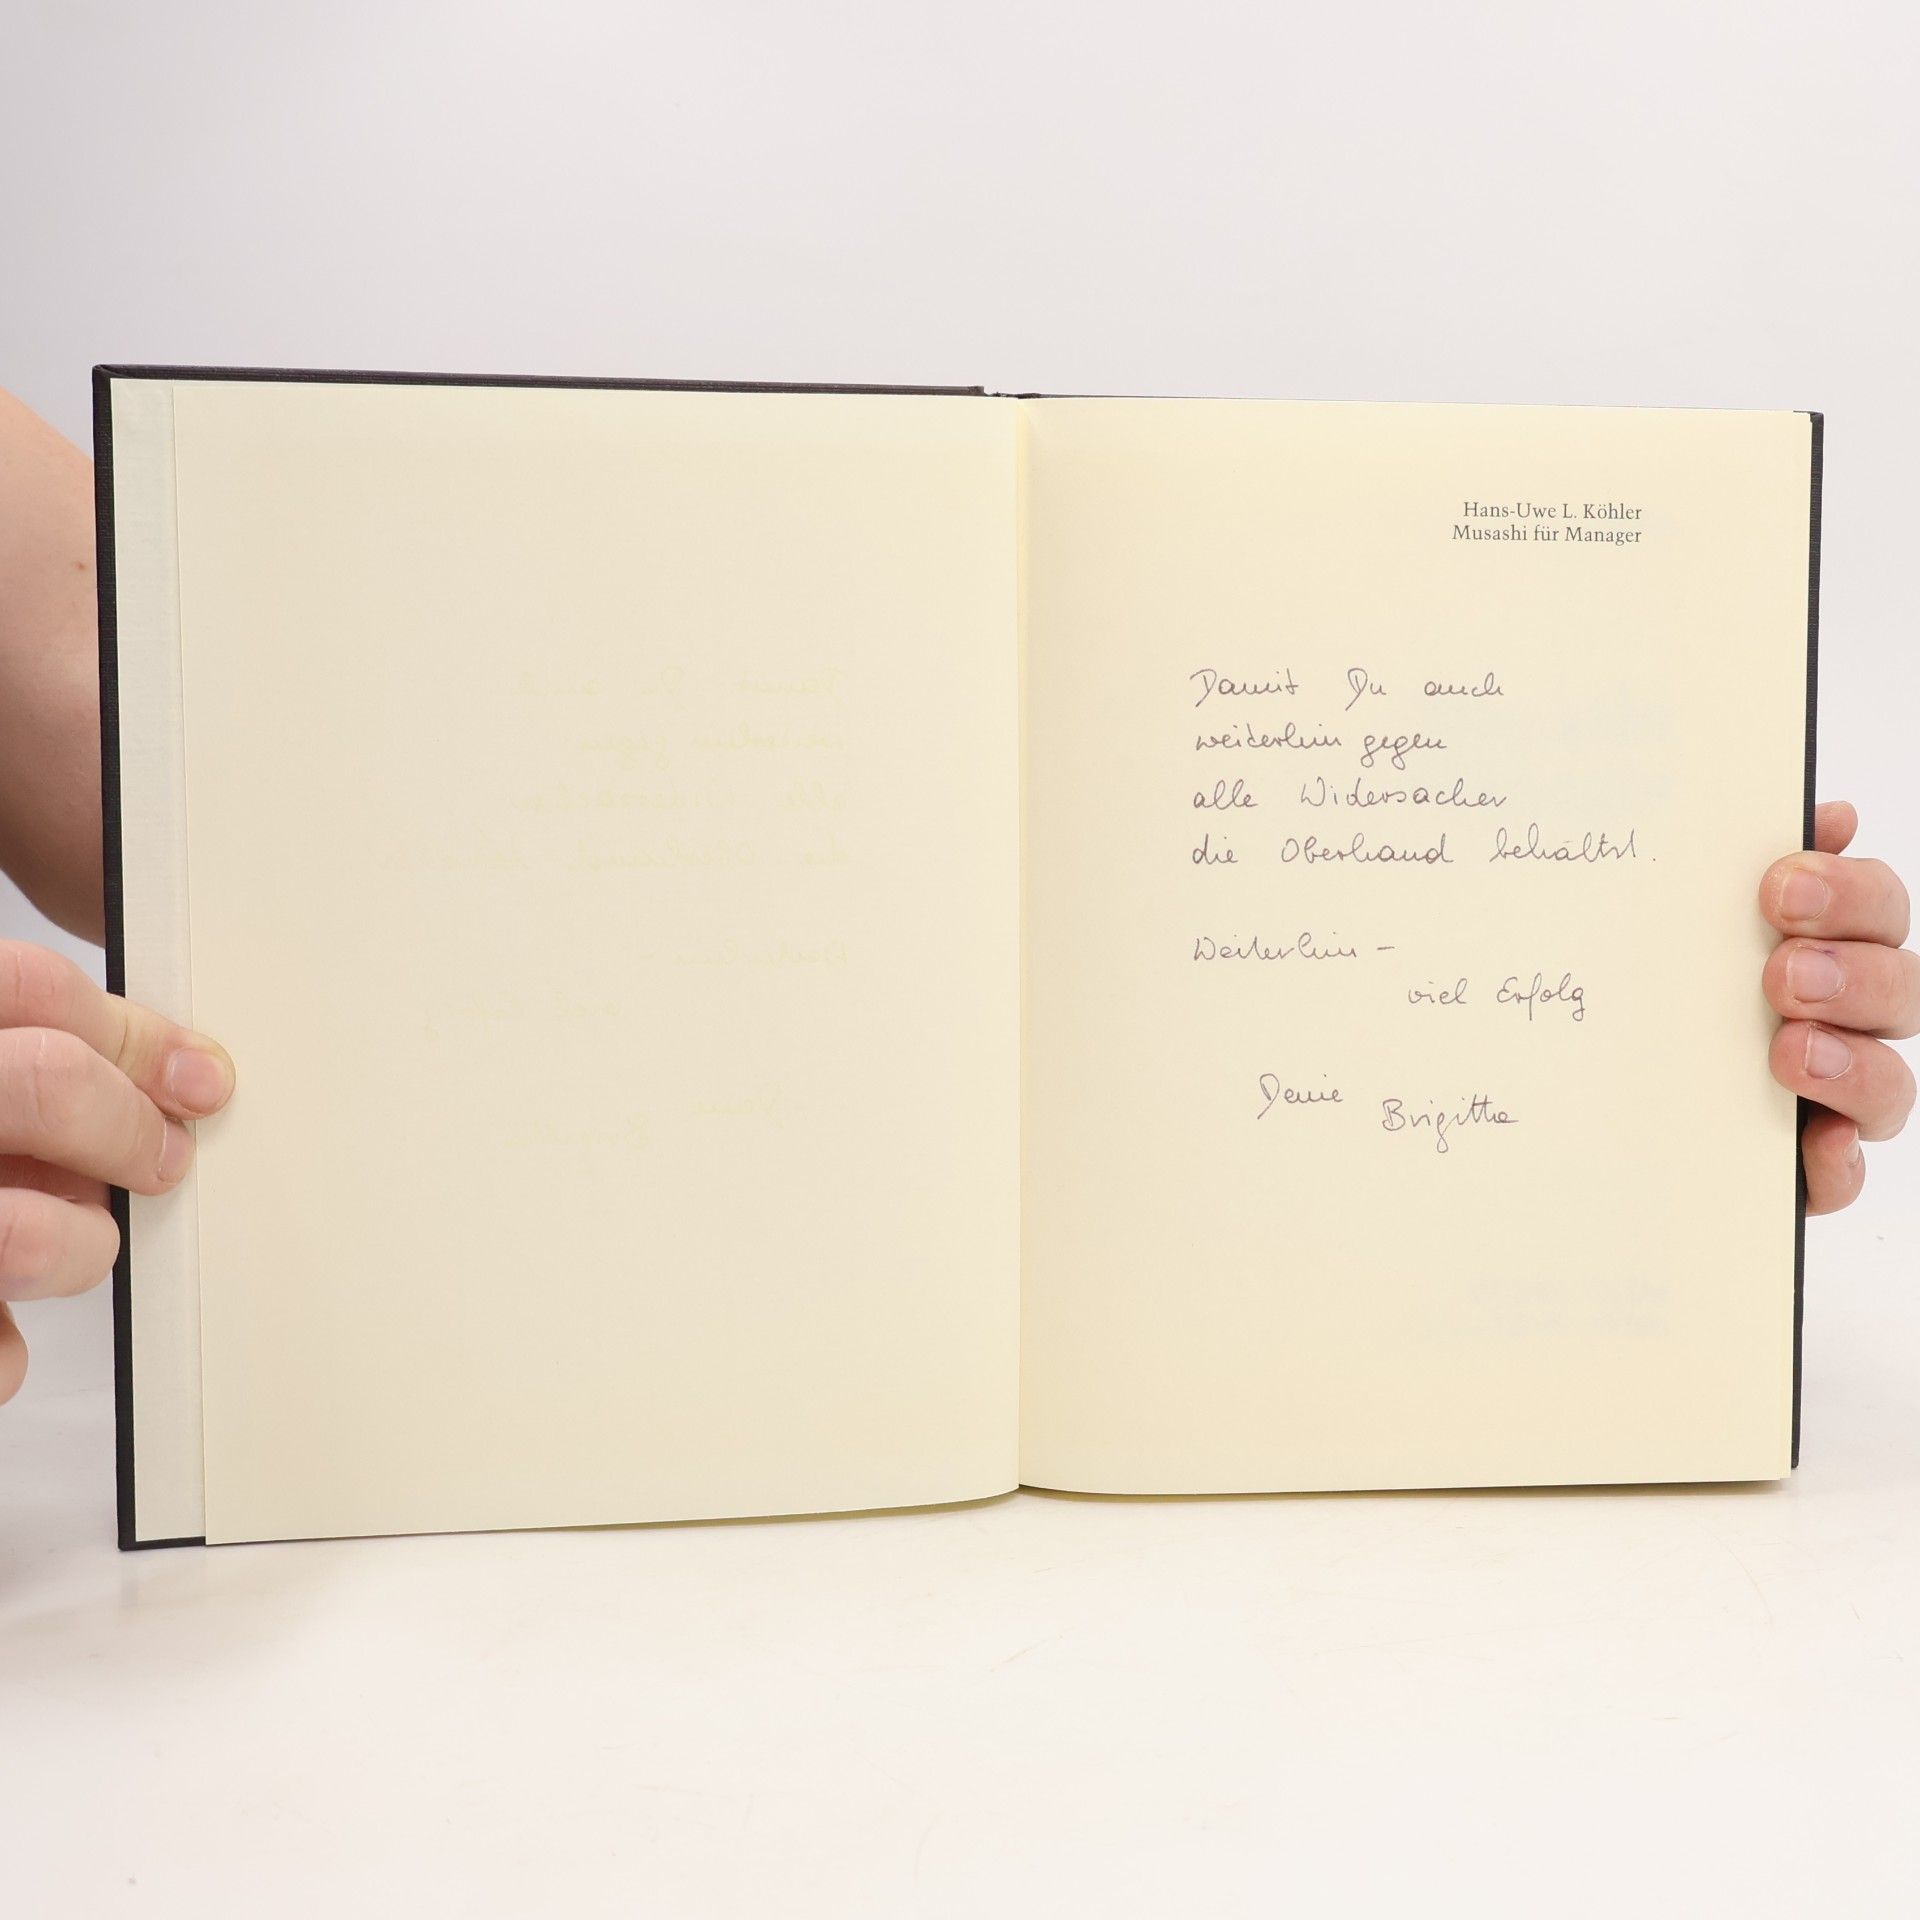 Hans-Uwe L. Köhler
Musashi für Manager
Damit Du auch
weiterhin gegen
alle Widersacher
die Oberhand behältst.
Weiterhin –
viel Erfolg
Deine
Brigitte